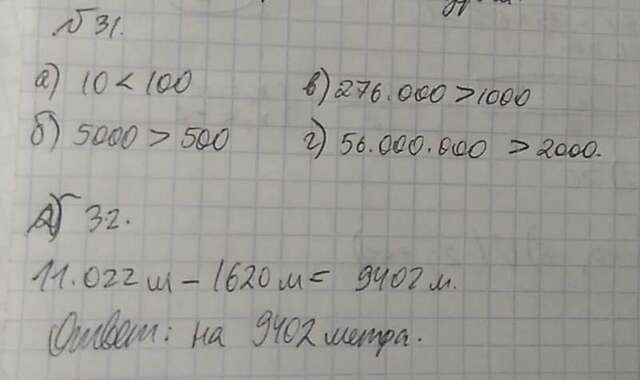 № 31.
а) 10 < 100
в) 276.000 > 1000
б) 5000 > 500
г) 56.000.000 > 2000.
№ 32.
11.022 м - 1620 м = 9402 м.
Ответ: на 9402 метра.